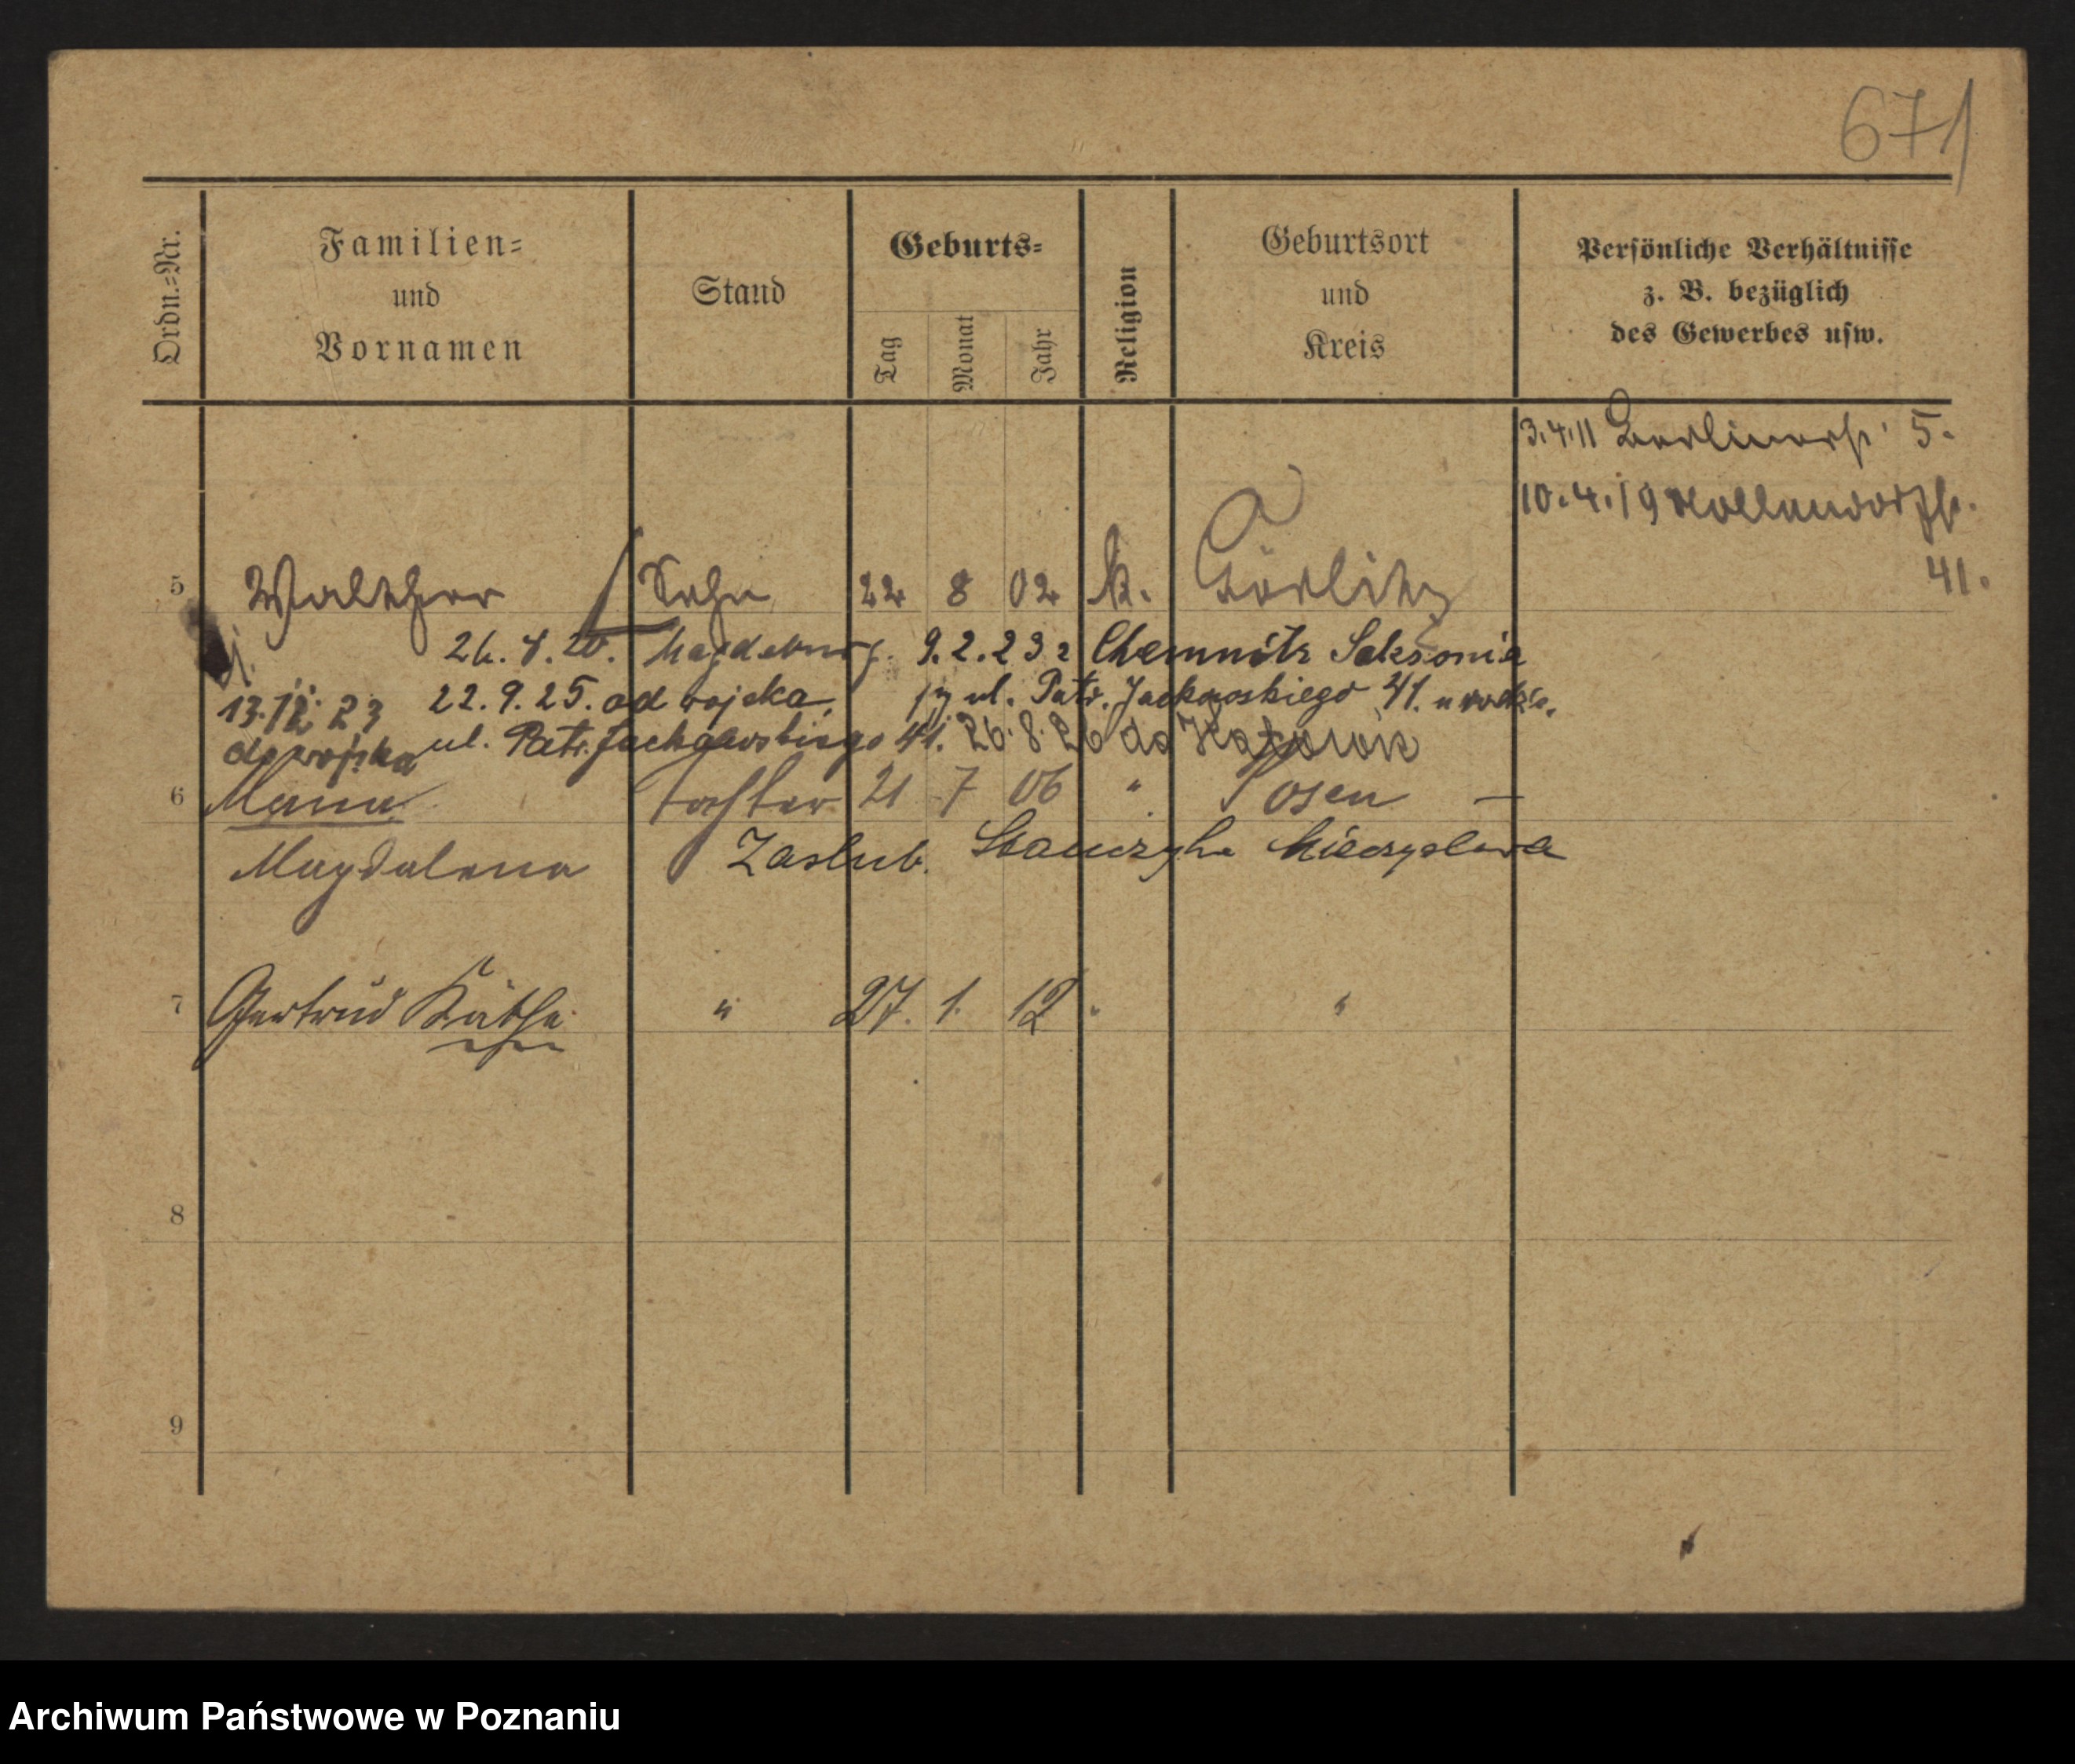 671
Ordn.=Nr.
Familien=
und
Vornamen
Stand
Geburts=
Tag
Monat
Jahr
Religion
Geburtsort
und
Kreis
Persönliche Verhältnisse
z. B. bezüglich
des Gewerbes usw.
3.4.11 Berlinerstr. 5.
10.4.19 Hollandorfstr.
41.
5 Walther Sohn 22 8 02 k. Görlitz
26.4.20. Magdeburg. 9.2.23 z Chemnitz Saksonia
13.12.23 22.9.25. od wojska, ul. Patr. Jackowskiego 41.
do wojska ul. Patr. Jackowskiego 41. 26.8.26 do Katowic
6 Maria Tochter 21 7 06 " Posen —
Magdalena Zaslub. Stanczyka Mieczyslawa
7 Gertrud Käthe " 27. 1. 12 " "
8
9
Archiwum Państwowe w Poznaniu